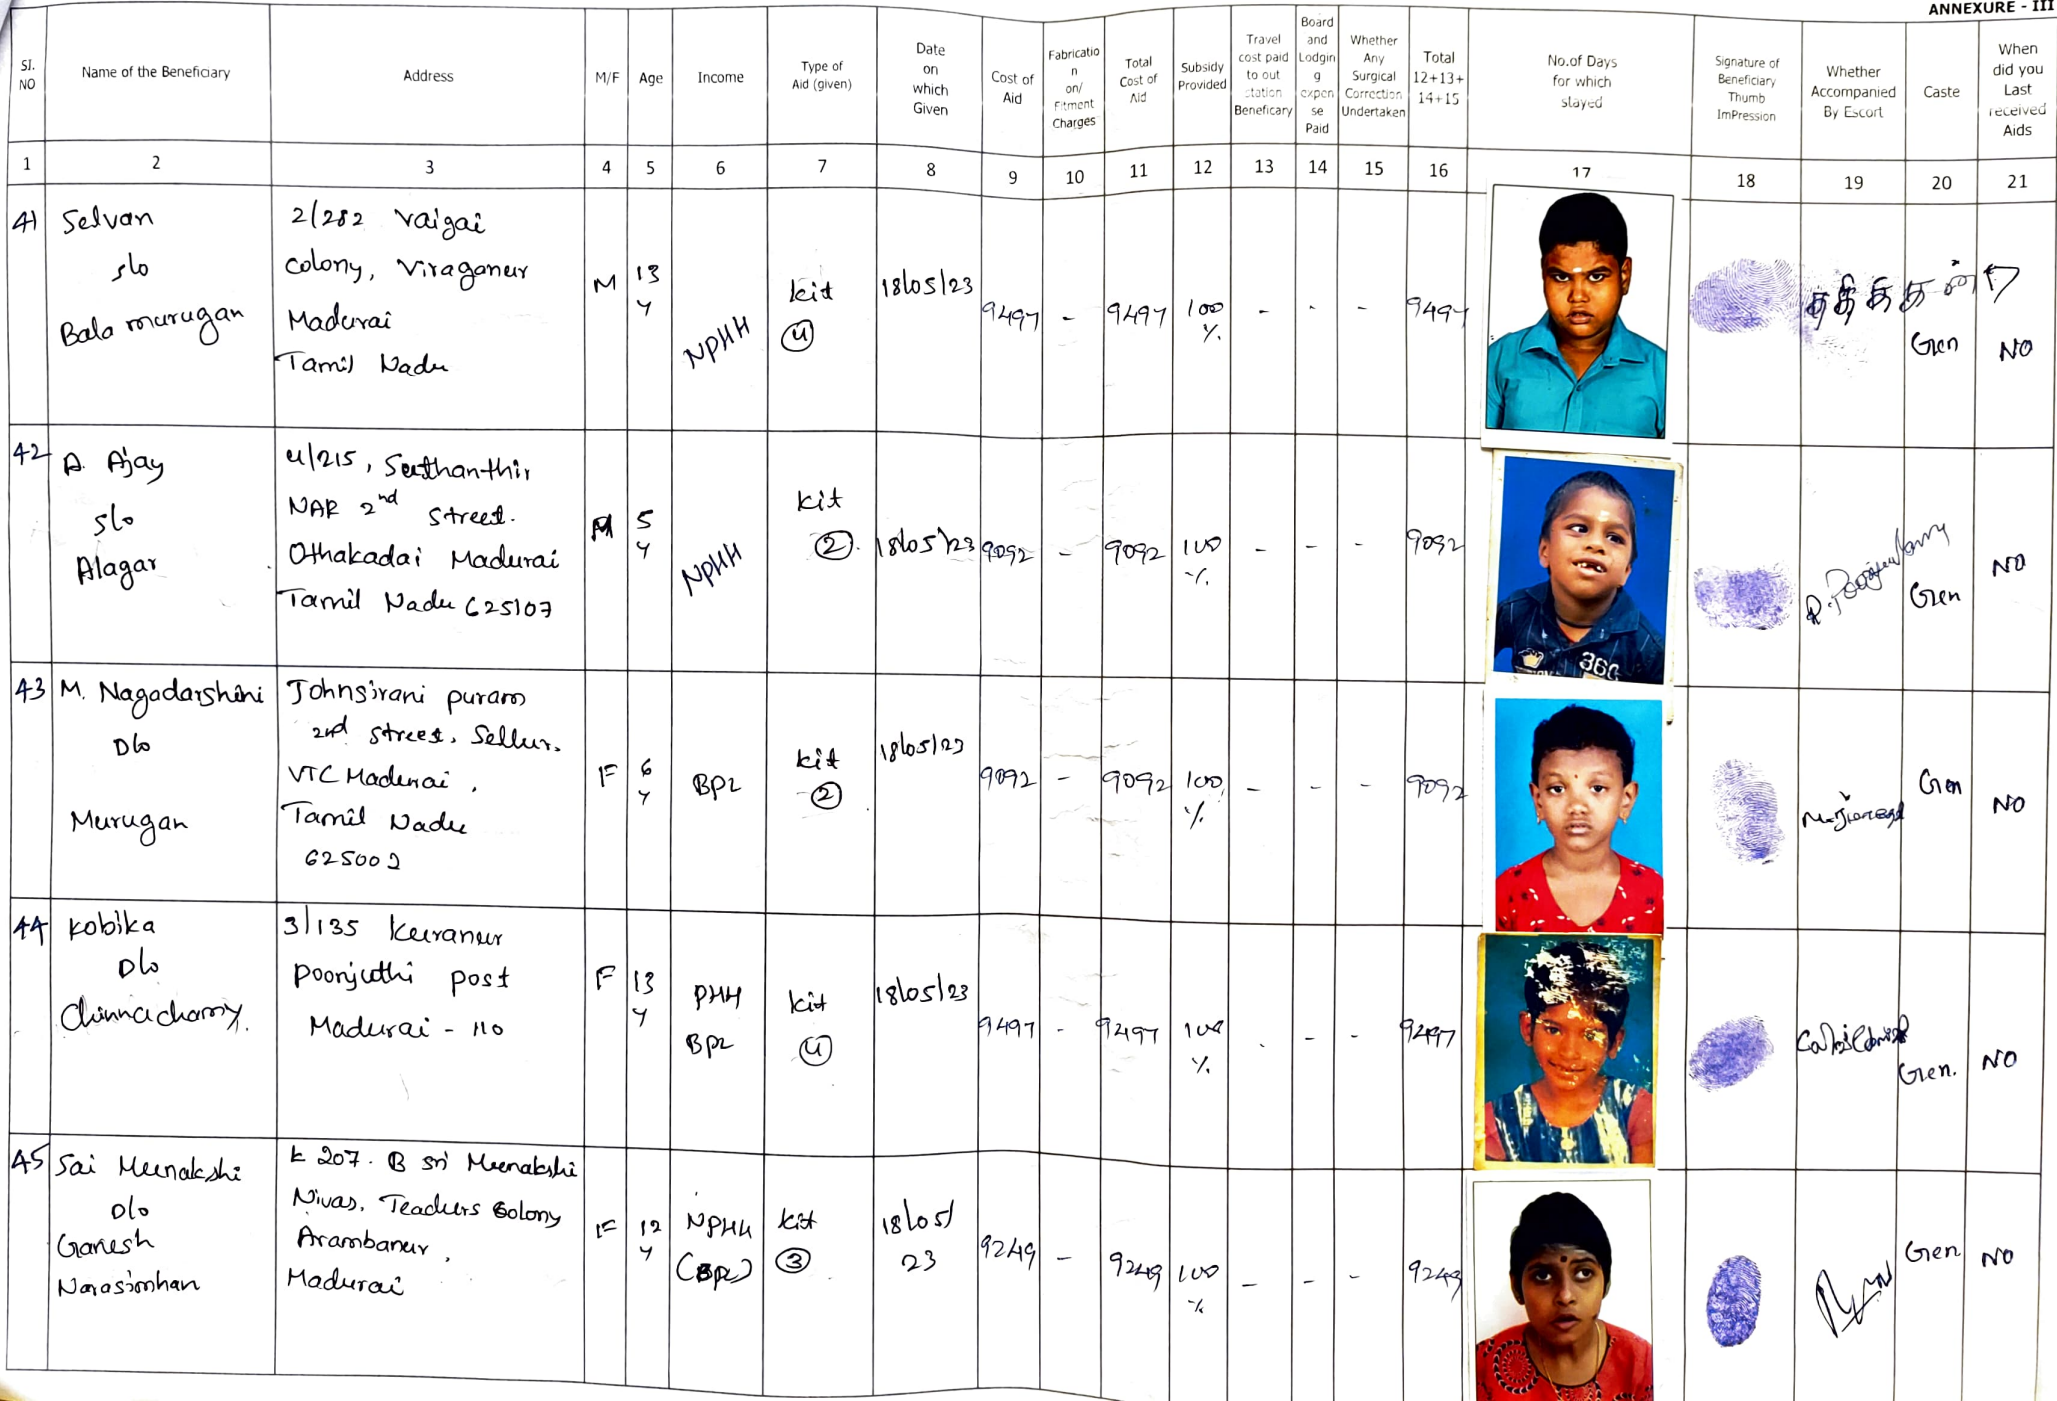 ANNEXURE - III
SI. NO
Name of the Beneficiary
Address
M/F
Age
Income
Type of
Aid (given)
Date
on
which
Given
Cost of
Aid
Fabricatio
n
on/
Fitment
Charges
Total
Cost of
Aid
Subsidy
Provided
Travel
cost paid
to out
station
Beneficary
Board
and
Lodgin
g
expen
se
Paid
Whether
Any
Surgical
Correction
Undertaken
Total
12+13+
14+15
No.of Days
for which
stayed
Signature of
Beneficiary
Thumb
ImPression
Whether
Accompanied
By Escort
Caste
When
did you
Last
received
Aids
1 2 3 4 5 6 7 8 9 10 11 12 13 14 15 16 17 18 19 20 21
41
Selvan
s/o
Bala murugan
2/282 Vaigai
colony, Viraganur
Madurai
Tamil Nadu
M
13
Y
NPHH
kit
4
18/05/23
9497 - 9497 100
%
- - - 9497
Gen
NO
42
A. Ajay
s/o
Alagar
4/215, Suthanthir
NAR 2nd Street.
Othakadai Madurai
Tamil Nadu 625107
M
5
Y
NPHH
kit
2
18/05/23 9092 - 9092 100
%
- - - 9092
360
Gen
NO
43
M. Nagadarshini
D/o
Murugan
Johnsirani puram
2nd street, Sellur,
VTC Madurai,
Tamil Nadu
625002
F
6
Y
BPL
kit
2
18/05/23
9092 - 9092 100
%
- - - 9092
Gen
NO
44
Kobika
D/o
Chinnachamy.
3/135 Kuranur
Poonjuthi post
Madurai - 110
F
13
Y
PHH
BPL
kit
4
18/05/23
9497 - 9497 100
%
- - - 9497
Gen.
NO
45
Sai Meenakshi
D/o
Ganesh
Narasimhan
K 207. B Sri Meenakshi
Nivas, Teachers Colony
Arambanur,
Madurai
F
12
Y
NPHH
(BPL)
kit
3
18/05/
23
9249 - 9249 100
%
- - - 9249
Gen
NO